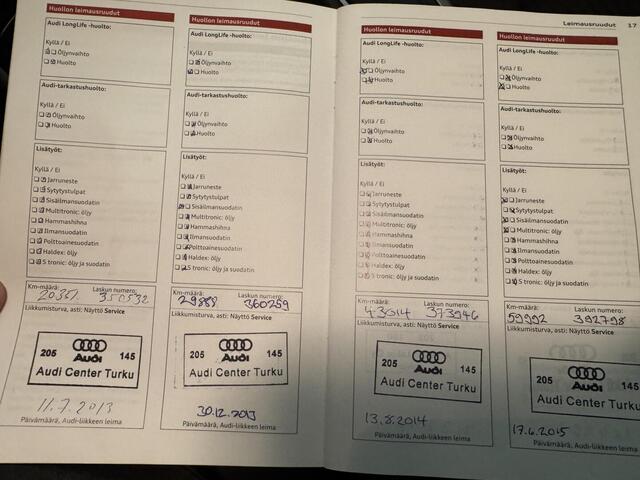 Huollon leimausruudut
Audi LongLife -huolto:
Kyllä / Ei
Öljynvaihto
Huolto
Audi-tarkastushuolto:
Kyllä / Ei
Öljynvaihto
Huolto
Lisätyöt:
Kyllä / Ei
Jarruneste
Sytytystulpat
Sisäilmansuodatin
Multitronic: öljy
Hammashihna
Ilmansuodatin
Polttoainesuodatin
Haldex: öljy
S tronic: öljy ja suodatin
Km-määrä: Laskun numero:
350532
Liikkumisturva, asti: Näyttö Service
205 Audi 145
Audi Center Turku
11.7.2013
Päivämäärä, Audi-liikkeen leima
Huollon leimausruudut
Audi LongLife -huolto:
Kyllä / Ei
Öljynvaihto
Huolto
Audi-tarkastushuolto:
Kyllä / Ei
Öljynvaihto
Huolto
Lisätyöt:
Kyllä / Ei
Jarruneste
Sytytystulpat
Sisäilmansuodatin
Multitronic: öljy
Hammashihna
Ilmansuodatin
Polttoainesuodatin
Haldex: öljy
S tronic: öljy ja suodatin
Km-määrä: Laskun numero:
29888 360259
Liikkumisturva, asti: Näyttö Service
205 Audi 145
Audi Center Turku
30.12.2013
Päivämäärä, Audi-liikkeen leima
Huollon leimausruudut
Audi LongLife -huolto:
Kyllä / Ei
Öljynvaihto
Huolto
Audi-tarkastushuolto:
Kyllä / Ei
Öljynvaihto
Huolto
Lisätyöt:
Kyllä / Ei
Jarruneste
Sytytystulpat
Sisäilmansuodatin
Multitronic: öljy
Hammashihna
Ilmansuodatin
Polttoainesuodatin
Haldex: öljy
S tronic: öljy ja suodatin
Km-määrä: Laskun numero:
43014 373946
Liikkumisturva, asti: Näyttö Service
205 Audi 145
Audi Center Turku
13.8.2014
Päivämäärä, Audi-liikkeen leima
Leimausruudut 17
Huollon leimausruudut
Audi LongLife -huolto:
Kyllä / Ei
Öljynvaihto
Huolto
Audi-tarkastushuolto:
Kyllä / Ei
Öljynvaihto
Huolto
Lisätyöt:
Kyllä / Ei
Jarruneste
Sytytystulpat
Sisäilmansuodatin
Multitronic: öljy
Hammashihna
Ilmansuodatin
Polttoainesuodatin
Haldex: öljy
S tronic: öljy ja suodatin
Km-määrä: Laskun numero:
59992 392798
Liikkumisturva, asti: Näyttö Service
205 Audi 145
Audi Center Turku
17.6.2015
Päivämäärä, Audi-liikkeen leima